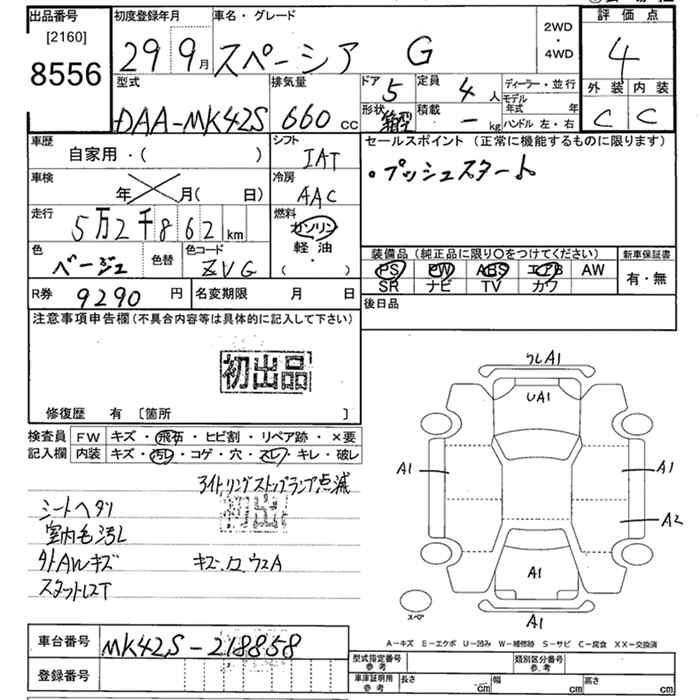 出品番号
[2160]
8556
初度登録年月
29 9月
車名・グレード
スペーシア G
2WD
・
4WD
評価点
4
外装 内装
C C
型式
DAA-MK42S
排気量
660 cc
ドア 5
定員 4人
形状 箱型
積載 - kg
ディーラー・並行
モデル年式 年
ハンドル 左・右
車歴
自家用・( )
シフト
IAT
車検
年 月( 日)
冷房
AAC
走行
5万2千862km
燃料
ガソリン
軽油
( ・ )
色
ベージュ
色替
色コード
ZVG
R券 9290円
名変期限 月 日
セールスポイント(正常に機能するものに限ります)
・プッシュスタート
装備品(純正品に限り〇をつけてください)
PS PW ABS エアB AW
SR ナビ TV カワ
新車保証書
有・無
後日品
注意事項申告欄(不具合内容等は具体的に記入して下さい)
初出品
修復歴 有 [箇所 ]
検査員記入欄
FW キズ・飛石・ヒビ割・リペア跡・×要
内装 キズ・汚レ・コゲ・穴・スレ・キレ・破レ
アイドリングストップランプ点滅
シートヘタリ
初出
室内毛汚レ
外AWキズ キズ、ロ、ウスA
スタットレスT
A1
UA1
A1
A1
A2
A1
スペア
A1
A-キズ E-エクボ U-凹み W-補修跡 S-サビ C-腐食 XX-交換済
車台番号 MK42S-218858
登録番号
型式指定番号 参考
類別区分番号 参考
車庫証明用 参考
長さ cm 幅 cm 高さ cm